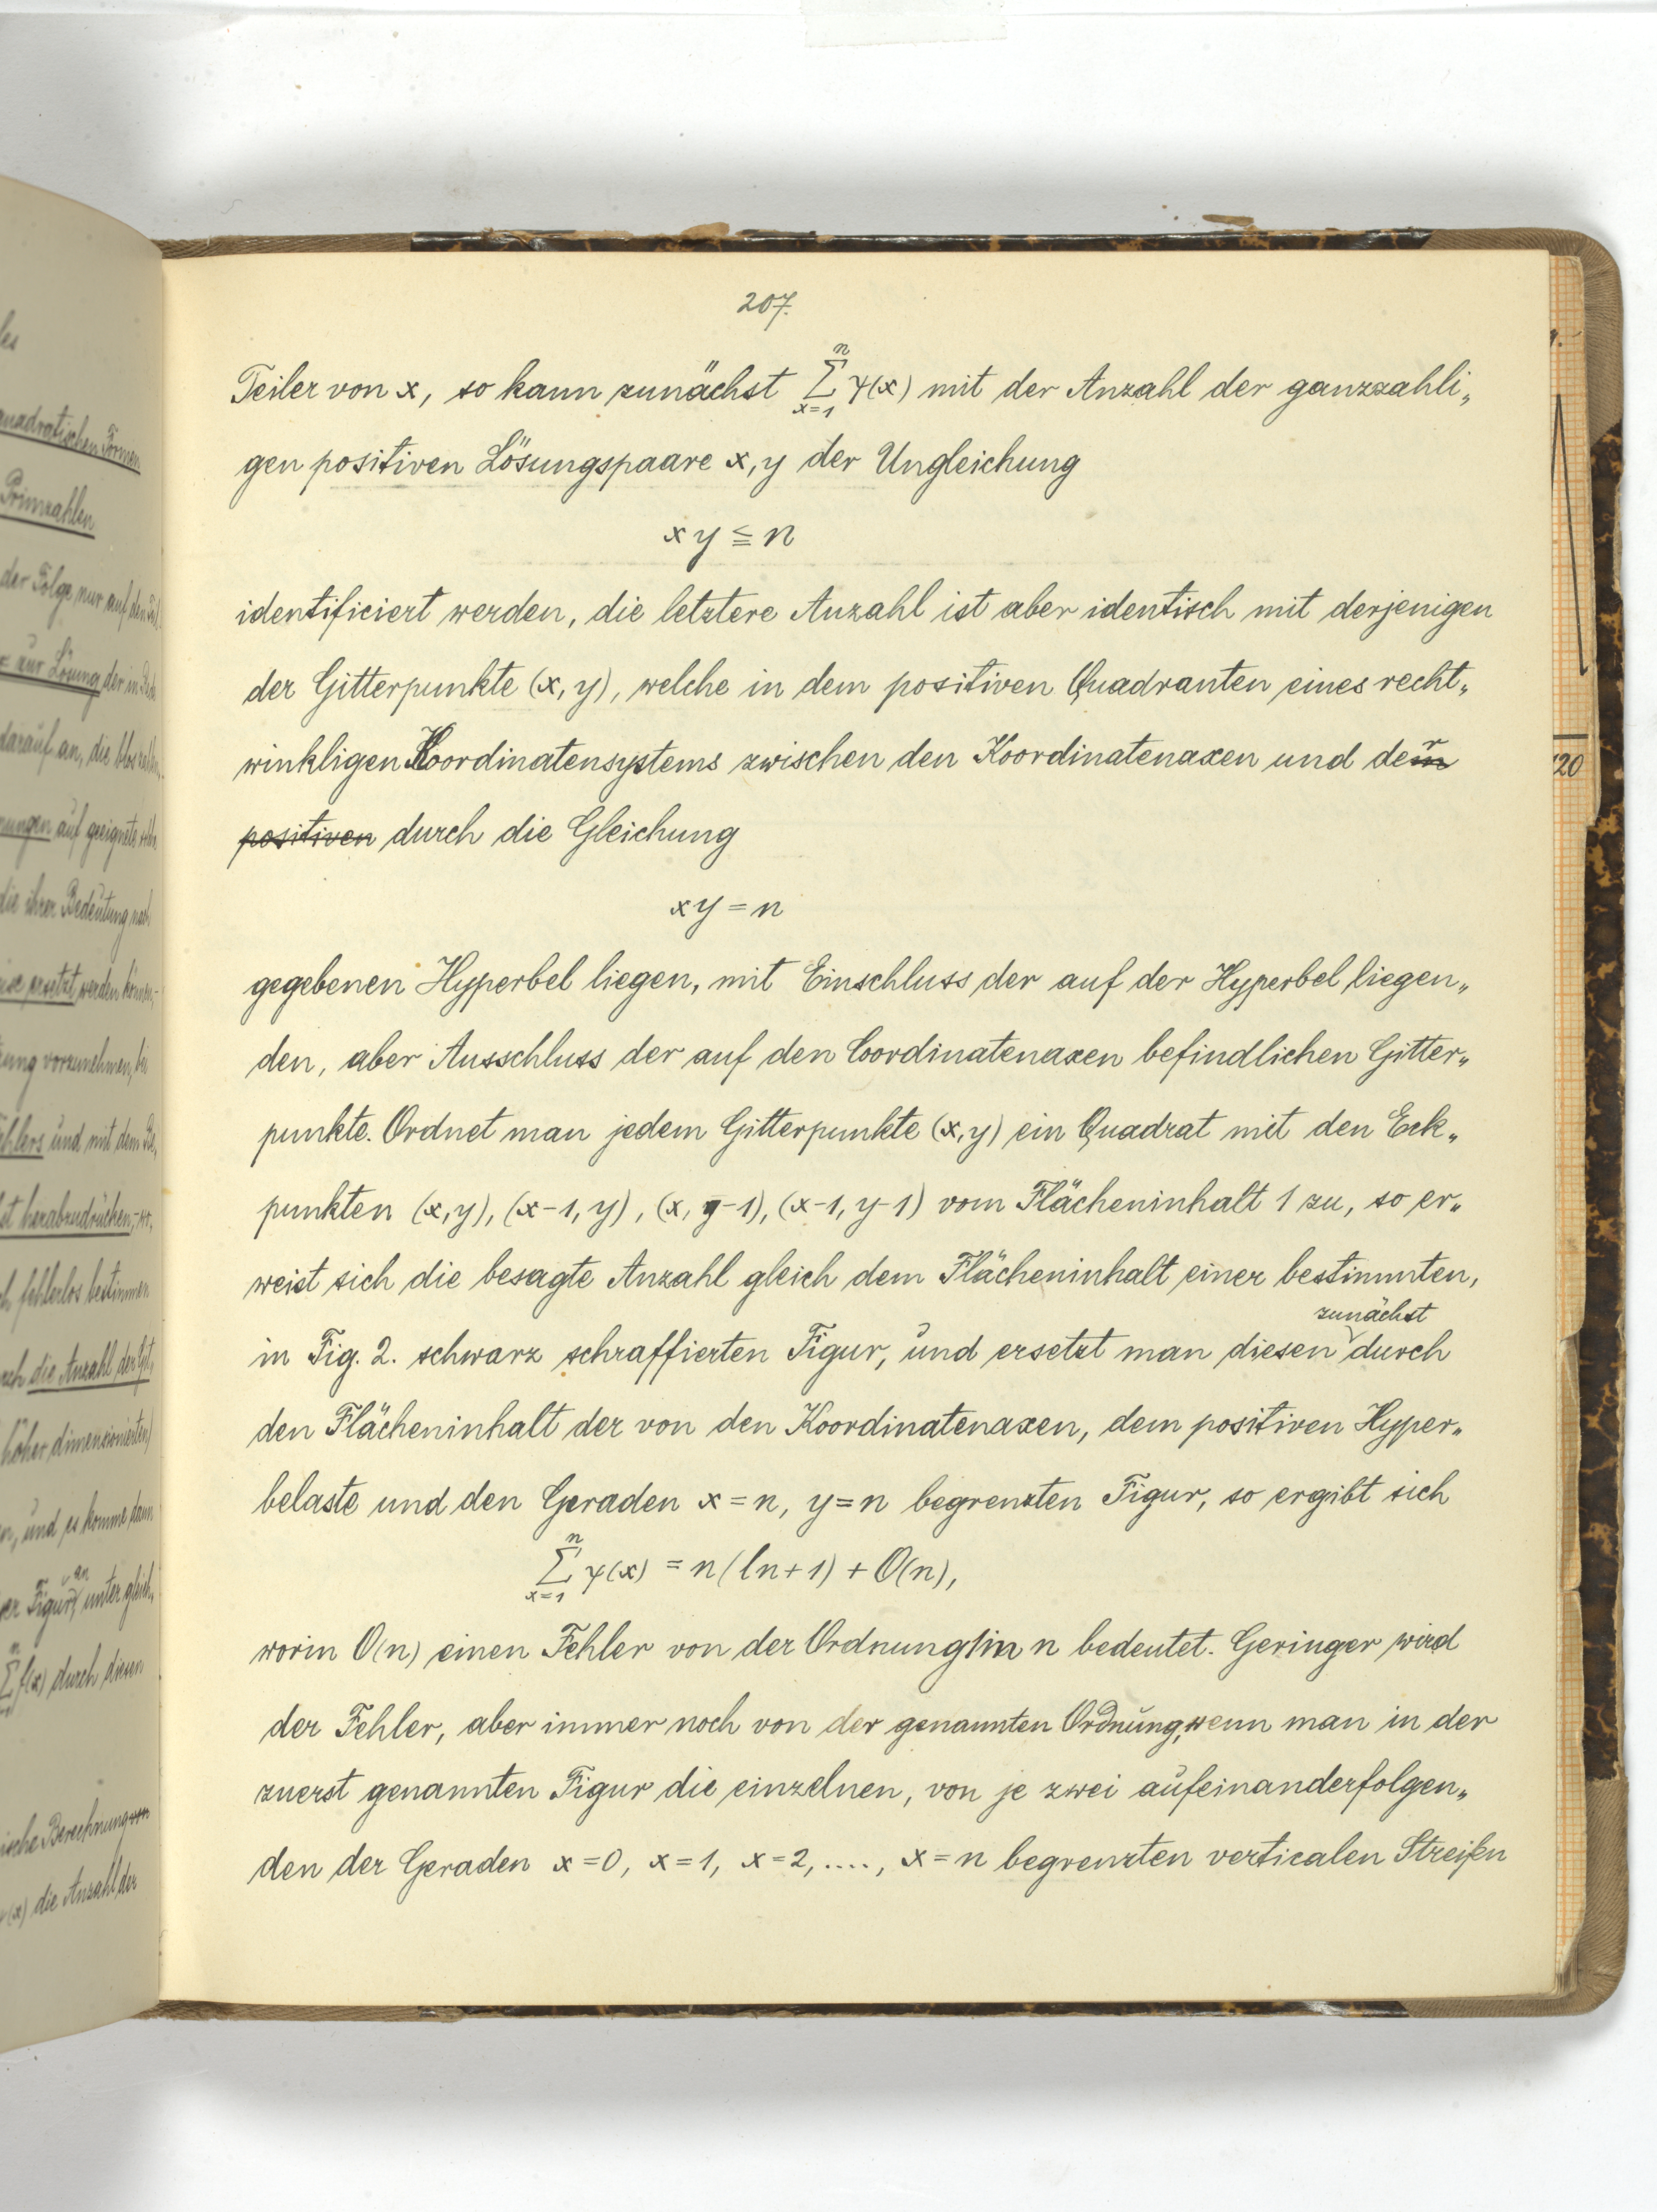 207.
Teiler von x, so kann zunächst n∑x=1 ψ(x) mit der Anzahl der ganzzahli„
gen positiven Lösungspaare x, y der Ungleichung
x y ≦ n
identificiert werden, die letztere Anzahl ist aber identisch mit derjenigen
der Gitterpunkte (x, y), welche in dem positiven Quadranten eines recht„
winkligen Koordinatensystems zwischen den Koordinatenaxen und der
positiven durch die Gleichung
xy = n
gegebenen Hyperbel liegen, mit Einschluss der auf der Hyperbel liegen„
den, aber Ausschluss der auf den Coordinatenaxen befindlichen Gitter„
punkte. Ordnet man jedem Gitterpunkte (x, y) ein Quadrat mit den Eck„
punkten (x, y), (x-1, y), (x, y-1), (x-1, y-1) vom Flächeninhalt 1 zu, so er„
weist sich die besagte Anzahl gleich dem Flächeninhalt einer bestimmten,
in Fig. 2. schwarz schraffierten Figur, und ersetzt man diesen zunächst durch
den Flächeninhalt der von den Koordinatenaxen, dem positiven Hyper„
belaste und den Geraden x = n, y = n begrenzten Figur, so ergibt sich
n∑x=1 ψ(x) = n(ln+1) + O(n),
worin O(n) einen Fehler von der Ordnung in n bedeutet. Geringer wird
der Fehler, aber immer noch von der genannten Ordnung, wenn man in der
zuerst genannten Figur die einzelnen, von je zwei aufeinanderfolgen„
den der Geraden x = 0, x = 1, x = 2, ...., x = n begrenzten verticalen Streifen
quadratischen Formen
Primzahlen
der Folge nur auf den
zur Lösung der in
darauf an, die
auf geeignete
die ihrer Bedeutung nach
ersetzt werden
vorzunehmen,
und mit dem
herabzudrücken,
fehlerlos bestimmen
die Anzahl der
höher dimensionierten
und es komme dann
unter
∑ f(x) durch diesen
Berechnung
ψ(x) die Anzahl der
120